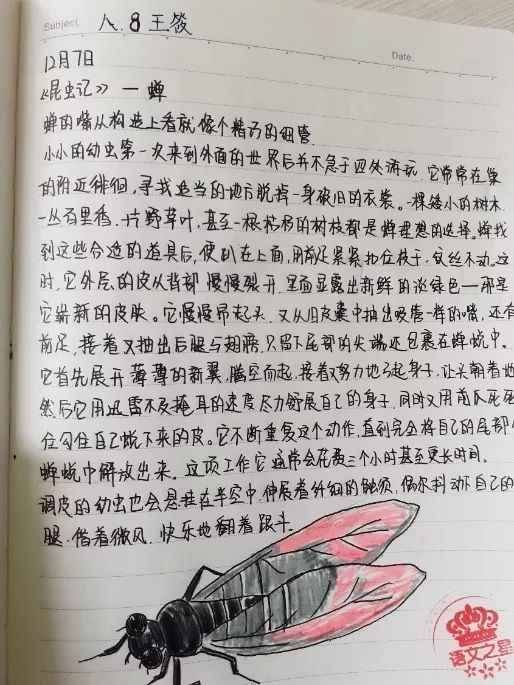 Subject. 八.8 王筱
Date.
12月7日
《昆虫记》一蝉
蝉的嘴从构造上看就像个精巧的细管.
小小的幼虫第一次来到外面的世界后并不急于四处游玩.它常常在巢
的附近徘徊,寻找适当的地方脱掉一身破旧的衣裳。一棵矮小的树木
一丛百里香.一片野草叶,甚至一根枯朽的树枝都是蝉理想的选择.蝉找
到这些合适的道具后,便趴在上面,用前足紧紧扣位枝子,纹丝不动.这
时,它外层的皮从背部慢慢裂开.里面显露出新鲜的淡绿色—那是
它崭新的皮肤。它慢慢昂起头.又从旧皮囊中抽出吸管一样的嘴,还有
前足,接着又抽出后腿与翅膀,只留下尾部的尖端还包裹在蝉蜕中。
它首先展开薄薄的新翼,腾空而起,接着又努力地弓起身子,让头朝着地
然后它用迅雷不及掩耳的速度尽力舒展自己的身子,同时又用前爪死死
位勾住自己蜕下来的皮。它不断重复这个动作,直到完全将自己的尾部
蝉蜕中解放出来.这项工作它通常会花费三个小时甚至更长时间.
调皮的幼虫也会悬挂在半空中,伸展着纤细的触须,偶尔抖动下自己的
腿.借着微风.快乐地翻着跟斗。
语文之星